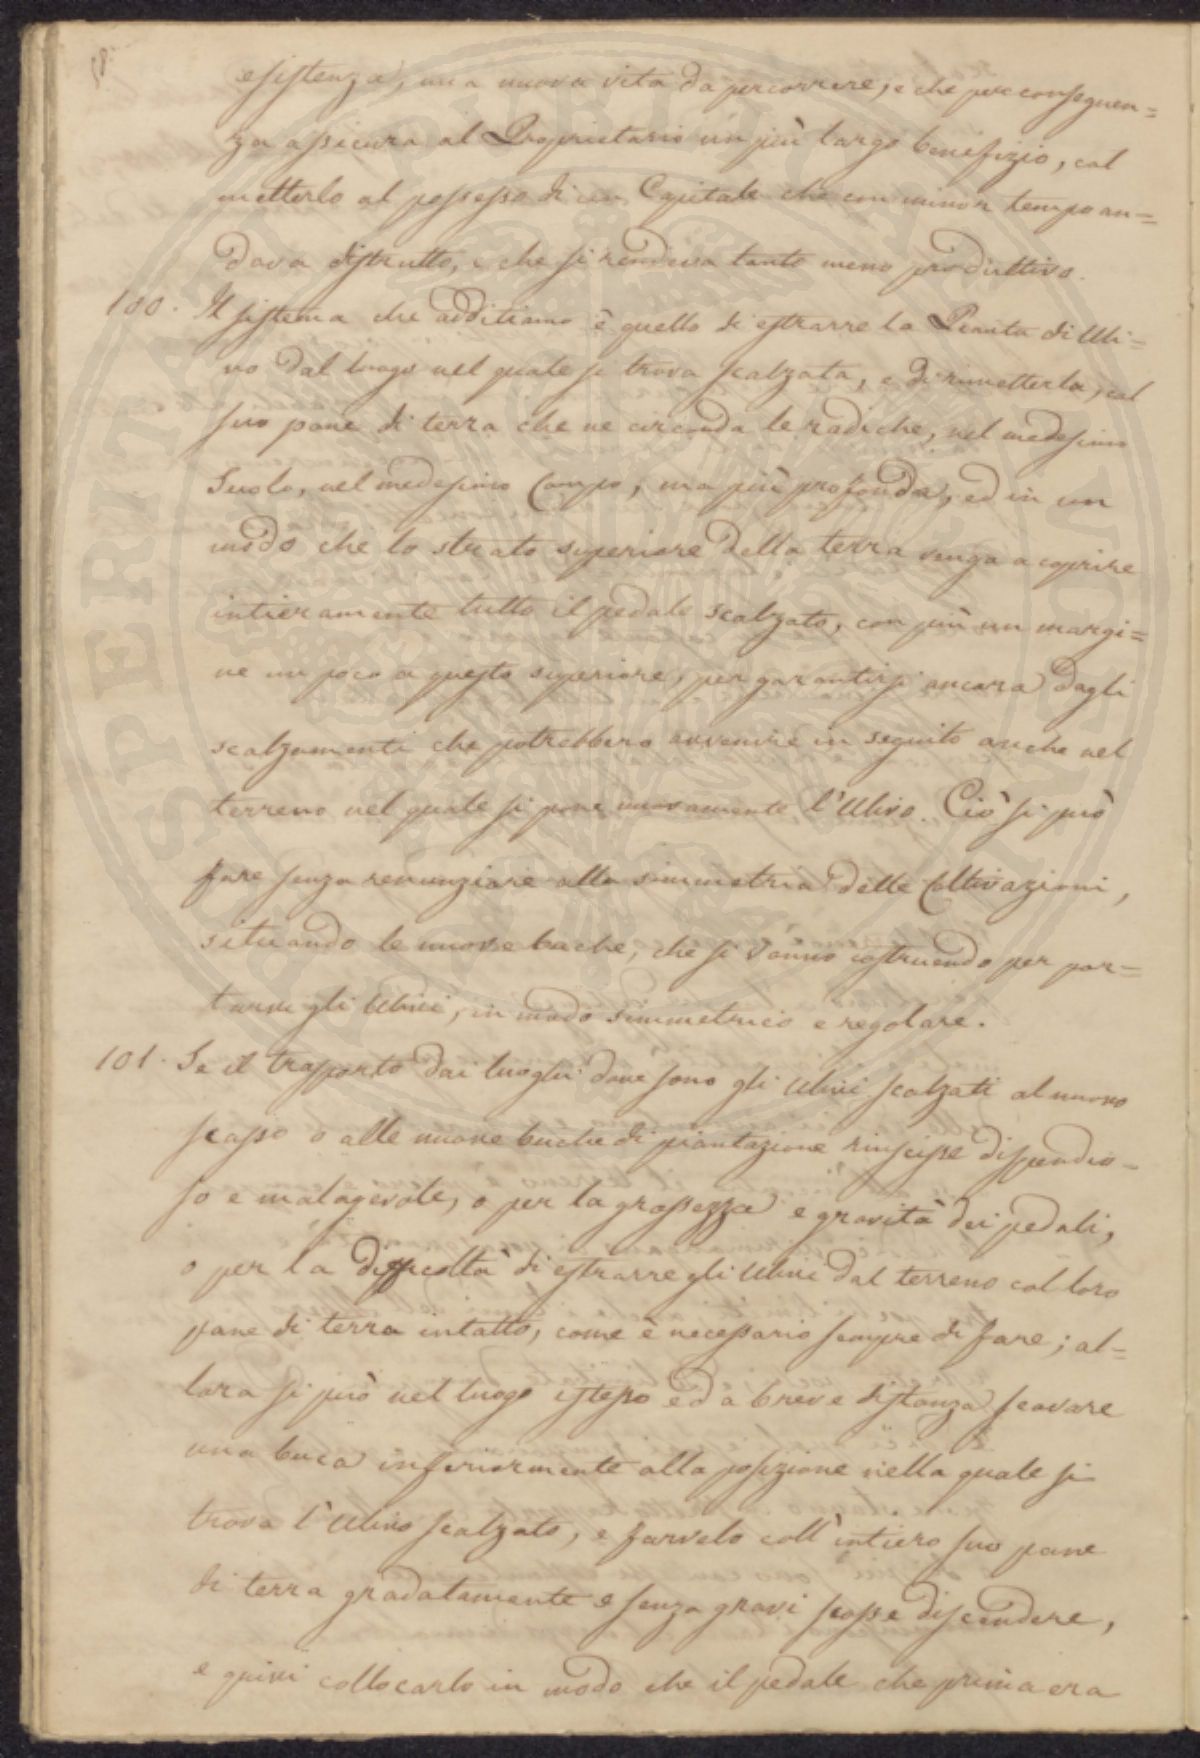 58.
esistenza, una nuova vita da percorrere, e che per conseguen=
za assicura al Proprietario un più largo benefizio, col
metterlo al possesso di un Capitale che con minor tempo an=
dava distrutto, e che si rendeva tanto meno produttivo.
100. Il sistema che additiamo è quello di estrarre la Pianta di Uli=
vo dal luogo nel quale si trova scalzata, e di rimetterla, col
suo pane di terra che ne circonda le radiche, nel medesimo
Suolo, nel medesimo Campo, ma più profonda, ed in un
modo che lo strato superiore della terra venga a coprire
intieramente tutto il pedale scalzato, con più un margi=
ne un poco a questo superiore, per garantirsi ancora dagli
scalzamenti che potrebbero avvenire in seguito anche nel
terreno nel quale si pone nuovamente l'Ulivo. Ciò si può
fare senza renunziare alla simmetria delle Coltivazioni,
situando le nuove buche, che si vanno costruendo per por=
tarvi gli Ulivi, in modo simmetrico e regolare.
101. Se il trasporto dai luoghi dove sono gli Ulivi scalzati al nuovo
scasso o alle nuove buche di piantazione riuscisse dispendio=
so e malagevole, o per la grossezza e gravità dei pedali,
o per la difficoltà di estrarre gli Ulivi dal terreno col loro
pane di terra intatto, come è necessario sempre di fare; al=
lora si può nel luogo istesso ed a breve distanza scavare
una buca inferiormente alla posizione nella quale si
trova l'Ulivo scalzato, e farvelo coll'intiero suo pane
di terra gradatamente e senza gravi scosse discendere,
e quivi collocarlo in modo che il pedale che prima era
SPERITAT PURITA VOCE